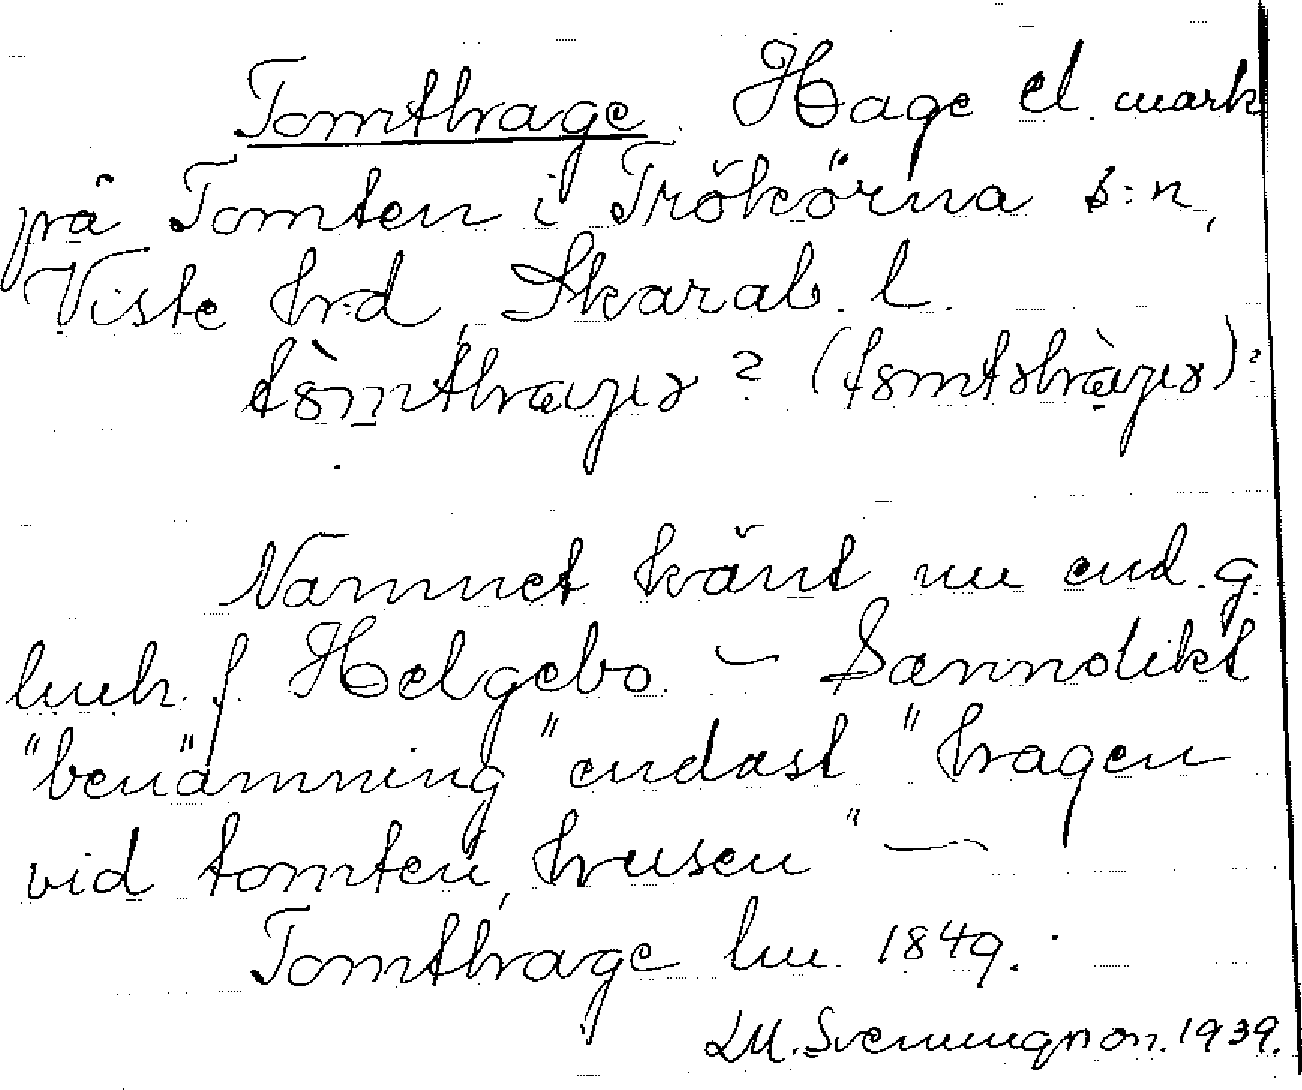 Tomthage. Hage el. mark
på Tomten i Trökörna s:n,
Viste hd, Skarab. l.
? ( )?
Namnet känt nu end. g.
luh. f. Helgebo – Sannolikt
"benämning" endast "hagen
vid tomten, husen" –
Tomthage lm 1849.
LM. Svenungson. 1939.